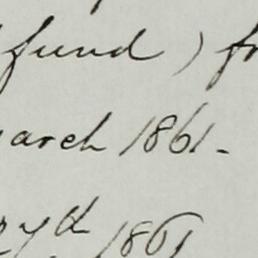 fund) fr
arch 1861.
ryd 1861